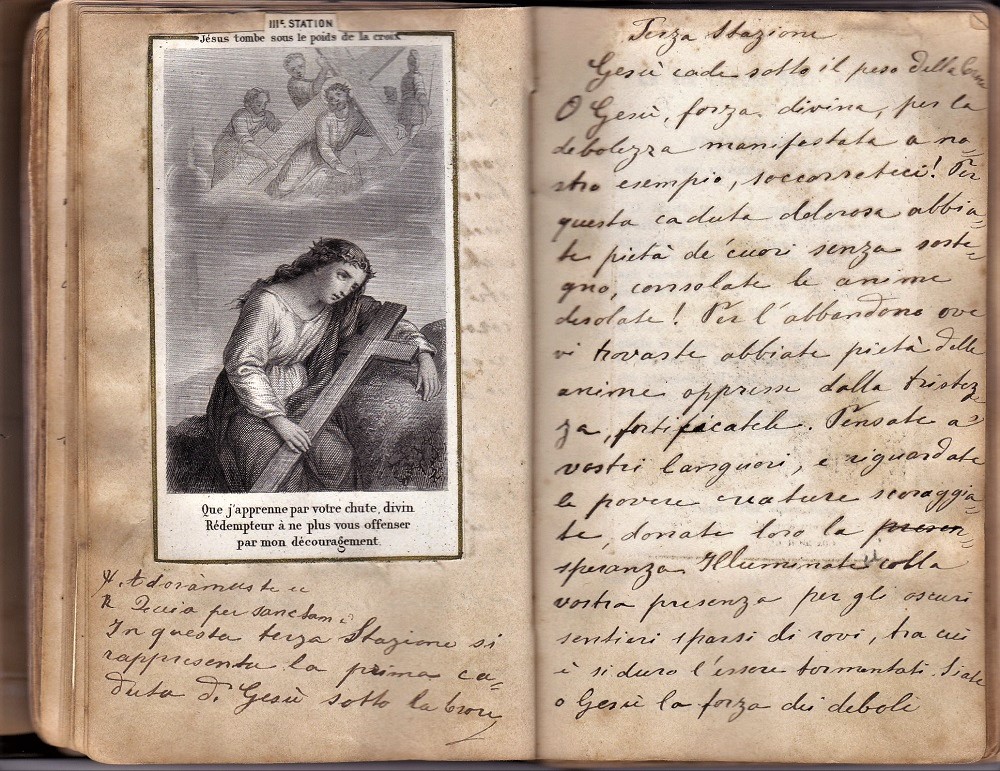 IIIᵉ. STATION
Jésus tombe sous le poids de la croix
Que j'apprenne par votre chute, divin
Rédempteur à ne plus vous offenser
par mon découragement.
℣. Adoràmus te
℟ Quia per sanctam
In questa terza Stazione si
rappresenta la prima ca=
duta di Gesù sotto la Croce
Terza Stazione
Gesù cade sotto il peso della Croce
O Gesù, forza divina, per la
debolezza manifestata a no=
stro esempio, soccorreteci! Per
questa caduta dolorosa abbia=
te pietà de' cuori senza soste=
gno, consolate le anime
desolate! Per l'abbandono ove
vi trovaste abbiate pietà delle
anime oppresse dalla tristez=
za, fortificatele. Pensate a'
vostri languori, e riguardate
le povere creature scoraggia=
te, donate loro la presen=
speranza Illuminate colla
vostra presenza per gli oscuri
sentieri sparsi di rovi, tra cui
è sì duro l'essere tormentati. Siate
o Gesù la forza dei deboli